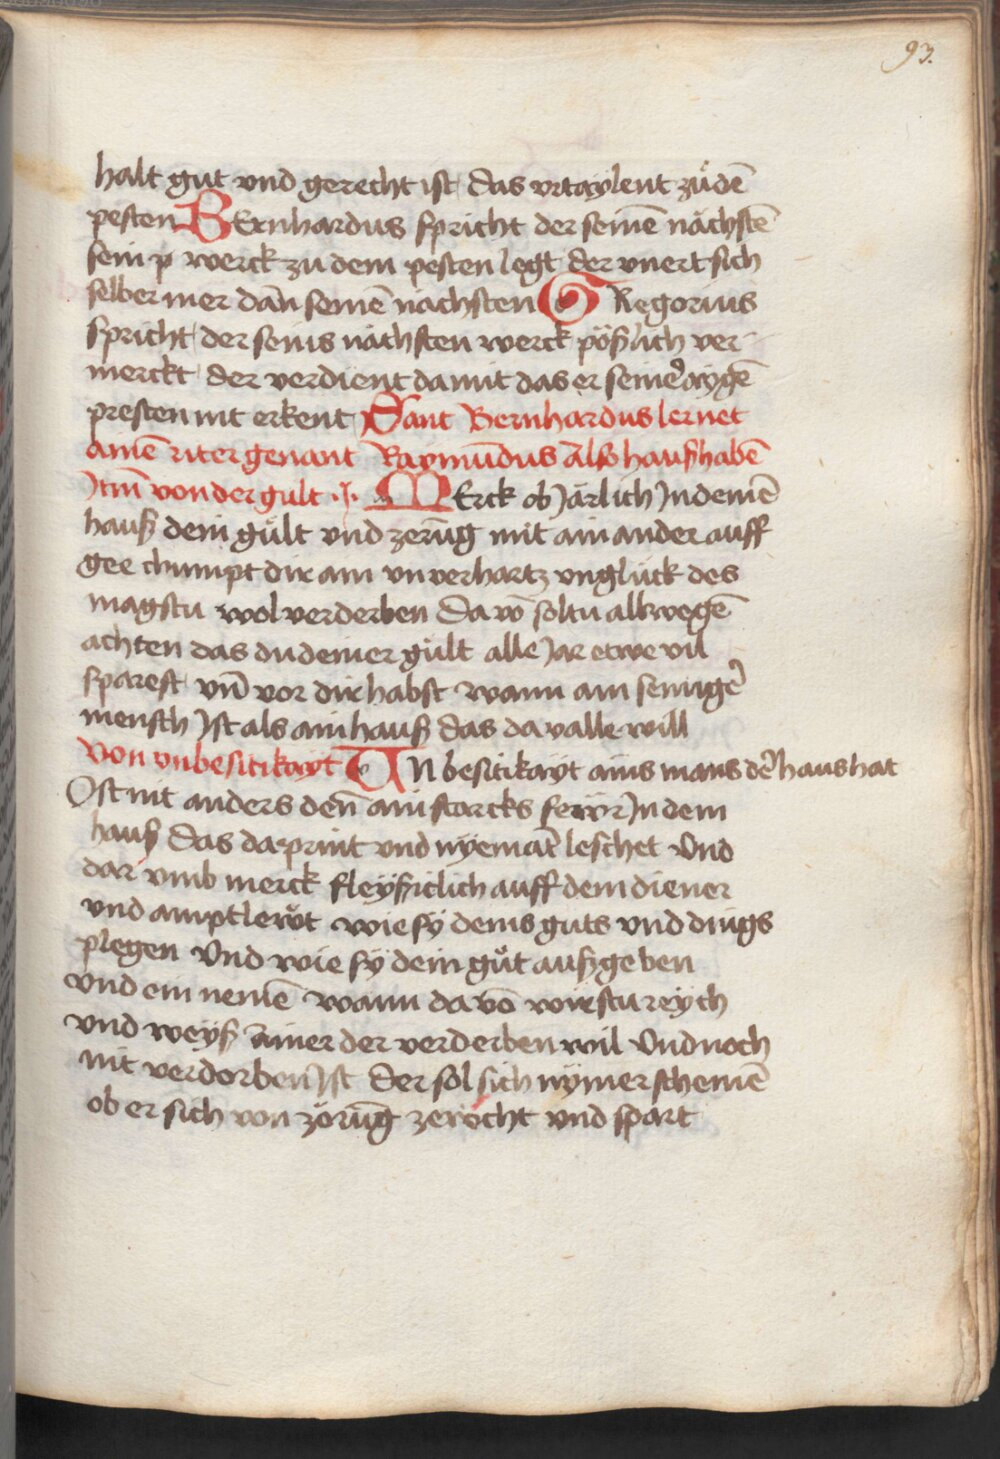 93.
halt gut vnd gerecht ist das vrtaylent zů dē
pesten BErnhardus spricht der seinē nächstē
sein p werck zu dem pesten legt der vnert sich
selber mer dan̄ seinē nachsten GRegorius
spricht der seins nächsten werck pößlich ver
merckt der verdient da mit das er seiner aygē
presten nit erkent Sant Bernhardus lernet
ainē riter genant Raymūdus Also hauß habē
Itm̄ von der gult .I. MErck ob Järlich In deinē
hauß dein gült vnd zerūg mit ain ander auff
gee chumpt dir ain vnverhartz vnglück des
magstu wol verderben Da vō soltu albwegē
achten das du deiner gült alle Jar etwe vil
sparest vn̄ vor dir habst wann ain seinigeʼ
mensch Ist als ain hauß das da valle will
Von vnbesitikayt VNbesitikayt ains mans deʼ haus hat
Ist nit anders den̄ ain starcks feẅr In dem
hauß das da print vnd nÿemāt leschet Vnd
dar vmb merck fleÿssiclich auff dein diener
vnd amptleẅt wie sÿ deins guts vnd dings
plegen Vnd wie sÿ dein gůt auß geben
vnd ein nemē wann da vō wirstu reÿch
vnd weÿß Ainer der verderben wil Vnd noch
nit verdorben Ist der sol sich nÿmer schemē
ob er sich von zörūg zeẅcht vnd spart